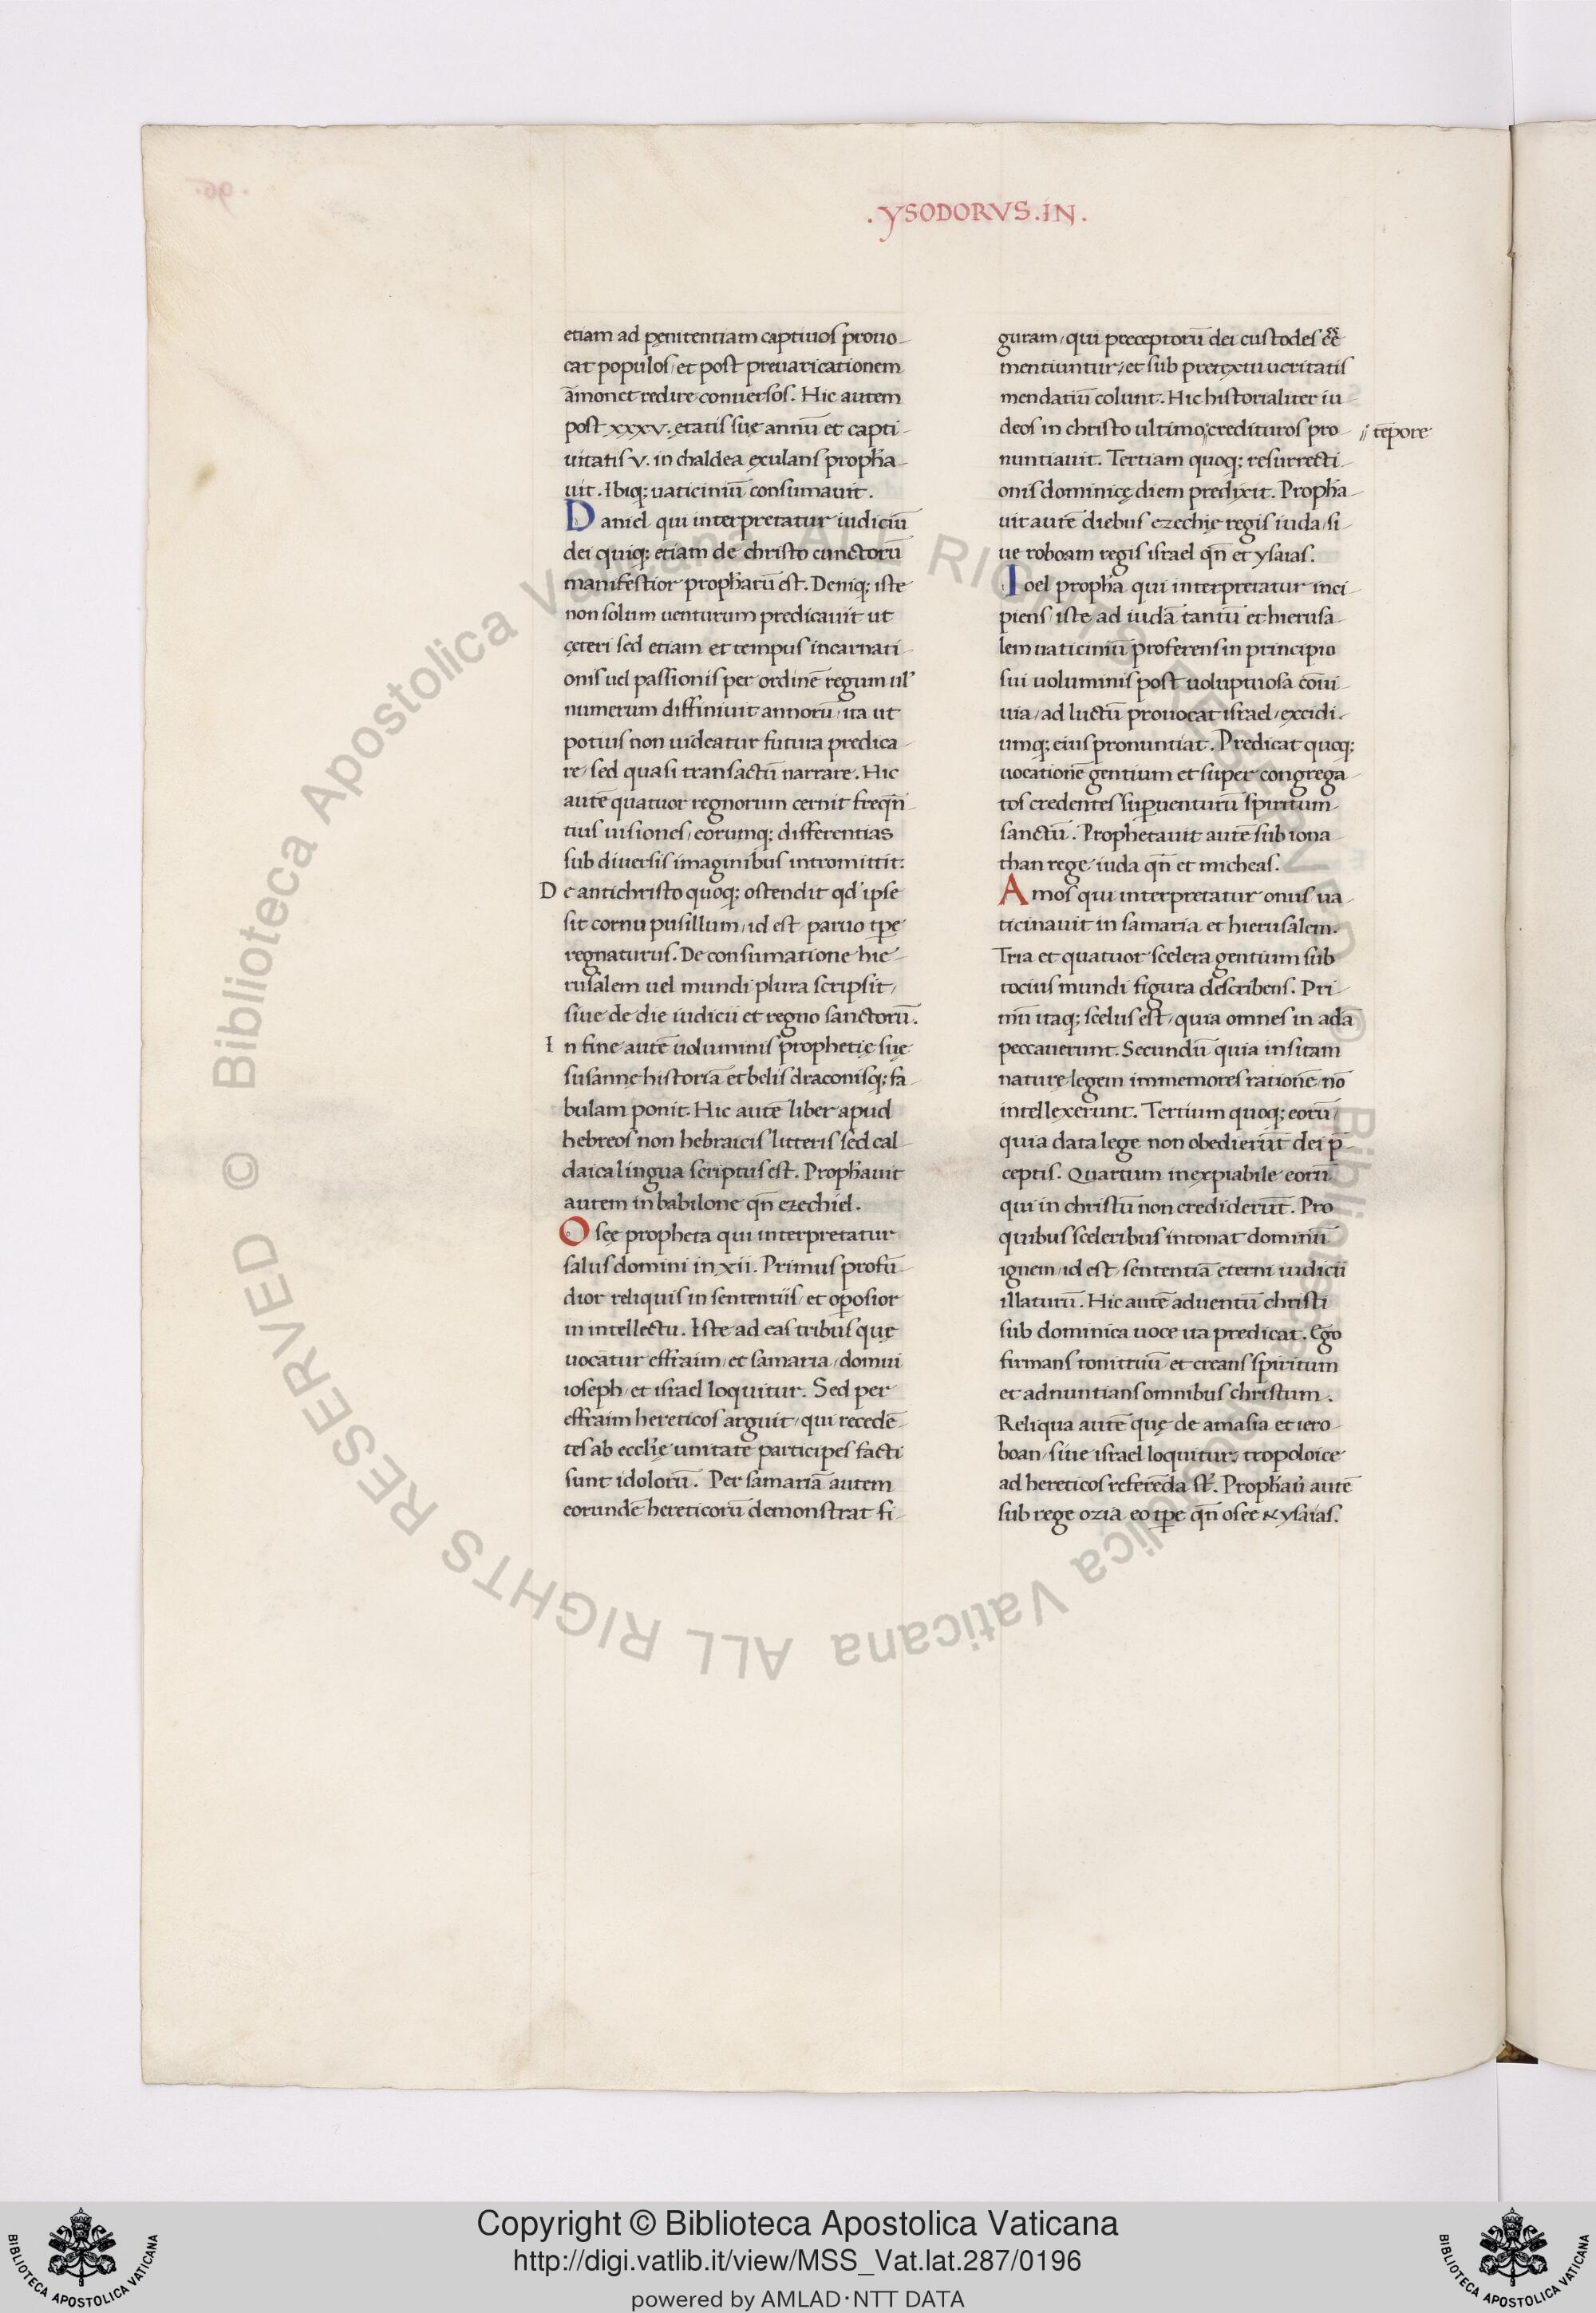 . YSODORVS . IN .
etiam ad pęnitentiam captiuos prouo-
cat populos, et post preuaricationem
āmonet redire conuersos. Hic autem
post xxxv. ętatis suę annū et capti-
uitatis v. in chaldea exulans propha-
uit. Ibiq; uaticiniū consumauit.
Daniel qui interpretatur iudiciū
dei quiq; etiam de christo cunctorū
manifestior prophārū est. Deniq; iste
non solum uenturum predicauit ut
çeteri sed etiam et tempus incarnati-
onis uel passionis per ordinē regum ul'
numerum diffiniuit annorū, ita ut
potius non uideatur futura predica-
re, sed quasi transactū narrare. Hic
autē quatuor regnorum cernit freqn̄
tius uisiones, eorumq; differentias
sub diuersis imaginibus intromittit:
De antichristo quoq; ostendit qd' ipse
sit cornu pusillum, id est paruo tp̄e
regnaturus. De consumatione hie-
rusalem uel mundi plura scripsit,
siue de die iudicii et regno sanctorū.
In fine autē uoluminis prophetię suę
susannę historiā et belis draconisq; fa-
bulam ponit. Hic autē liber apud
hebreos non hebraicis litteris sed cal-
daica lingua scriptus est. Prophauit
autem in babilone qn̄ ezechiel.
Osee propheta qui interpretatur
salus domini in xii. Primus profū-
dior reliquis in sententiis, et oposior
in intellectu. Iste ad eas tribus quę
uocatur effraim, et samaria, domui
ioseph, et israel loquitur. Sed per
effraim hereticos arguit, qui recedē-
tes ab eccl'ię unitate participes facti
sunt idolorū. Per samariā autem
eorundē hereticorū demonstrat fi-
guram, qui preceptorū dei custodes ēē
mentiuntur, et sub pretextu ueritatis
mendatiū colunt. Hic historialiter iu-
deos in christo ultimo // credituros pro- // tēpore
nuntiauit. Tertiam quoq; resurrecti-
onis dominicę diem predixit. Propha-
uit autē diebus ezechię regis iuda, si-
ue roboam regis israel qn̄ et ysaias.
Ioel propha qui interpretatur inci-
piens, iste ad iudā tantū et hierusa-
lem uaticiniū proferens in principio
sui uoluminis post uoluptuosa cōui-
uia, ad luctū prouocat israel, excidi-
umq; eius pronuntiat. Predicat quoq;
uocationē gentium et super congrega-
tos credentes sup̱uenturū spiritum
sanctū. Prophetauit autē sub iona-
than rege iuda qn̄ et micheas.
Amos qui interpretatur onus ua-
ticinauit in samaria et hierusalem.
Tria et quatuor scelera gentium sub
tocius mundi figura describens. Pri-
mū itaq; scelus est, quia omnes in adā
peccauerunt. Secundū quia insitam
naturę legem immemores rationē nō
intellexerunt. Tertium quoq; eorū,
quia data lege non obedierūt dei p̄-
ceptis. Quartum inexpiabile eorū
qui in christū non crediderūt. Pro
quibus sceleribus intonat dominū
ignem, id est, sententiā eterni iudicii
illaturū. Hic autē aduentū christi
sub dominica uoce ita predicat. Ego
firmans tonitruū et creans spiritum
et adnuntians omnibus christum.
Reliqua autē quę de amasia et iero-
boan, siue israel loquitur, tropoloice
ad hereticos referēda st̄. Prophau̇ autē
sub rege ozia eo tp̄e qn̄ osee & ysaias.
© Biblioteca Apostolica Vaticana ALL RIGHTS RESERVED © Biblioteca Apostolica Vaticana ALL RIGHTS RESERVED
Copyright © Biblioteca Apostolica Vaticana
http://digi.vatlib.it/view/MSS_Vat.lat.287/0196
powered by AMLAD·NTT DATA
BIBLIOTECA APOSTOLICA VATICANA
BIBLIOTECA APOSTOLICA VATICANA